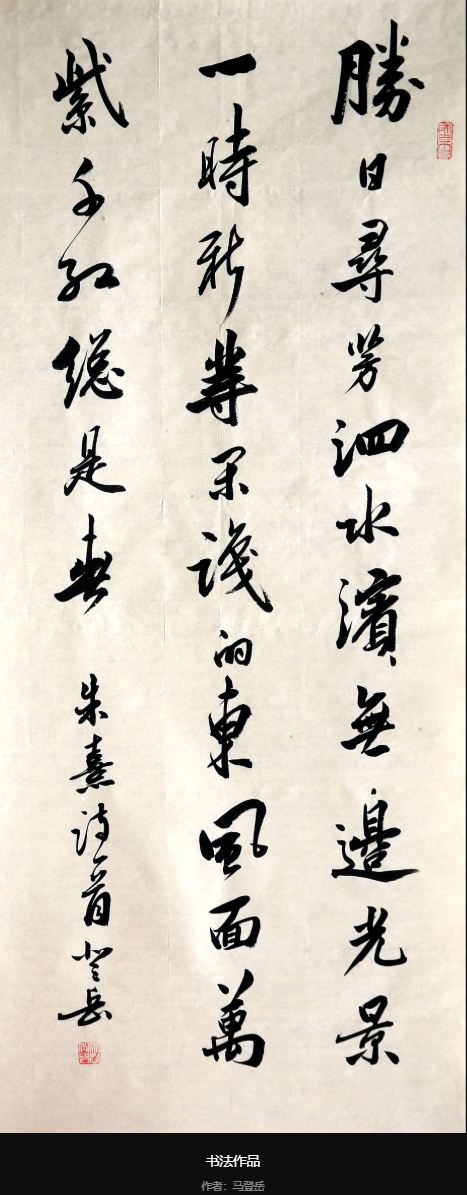 勝日尋芳泗水濱無邊光景
一時新等闲識的東風面萬
紫千红總是春
朱熹诗一首登岳
书法作品
作者：马登岳